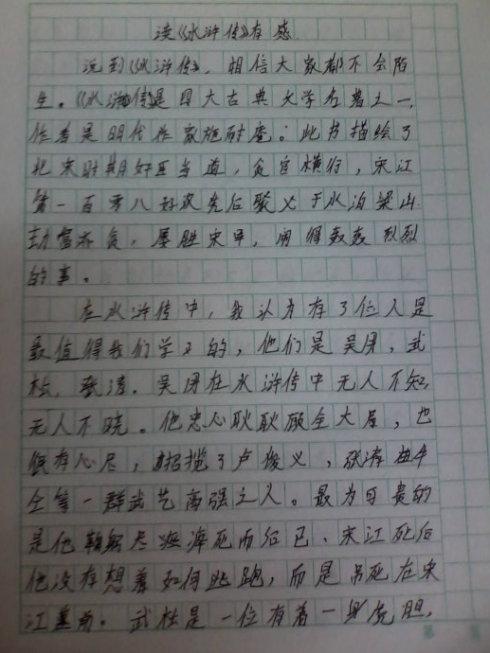 读《水浒传》有感
说到《水浒传》，相信大家都不会陌
生。《水浒传》是四大古典文学名著之一，
作者是明代作家施耐庵。此书描绘了
北宋时期奸臣当道，贪官横行，宋江
等一百零八好汉先后聚义于水泊梁山
劫富济贫，屡胜宋军，闹得轰轰烈烈
的事。
在水浒传中，我认为有3位人是
最值得我们学习的，他们是吴用，武
松，张清。吴用在水浒传中无人不知，
无人不晓。他忠心耿耿顾全大局，也
很有心思，招揽了卢俊义，张清
全等一群武艺高强之人。最为可贵的
是他鞠躬尽瘁死而后已、宋江死后
他没有想着如何逃跑，而是吊死在宋
江墓前。武松是一位有着一身虎胆，